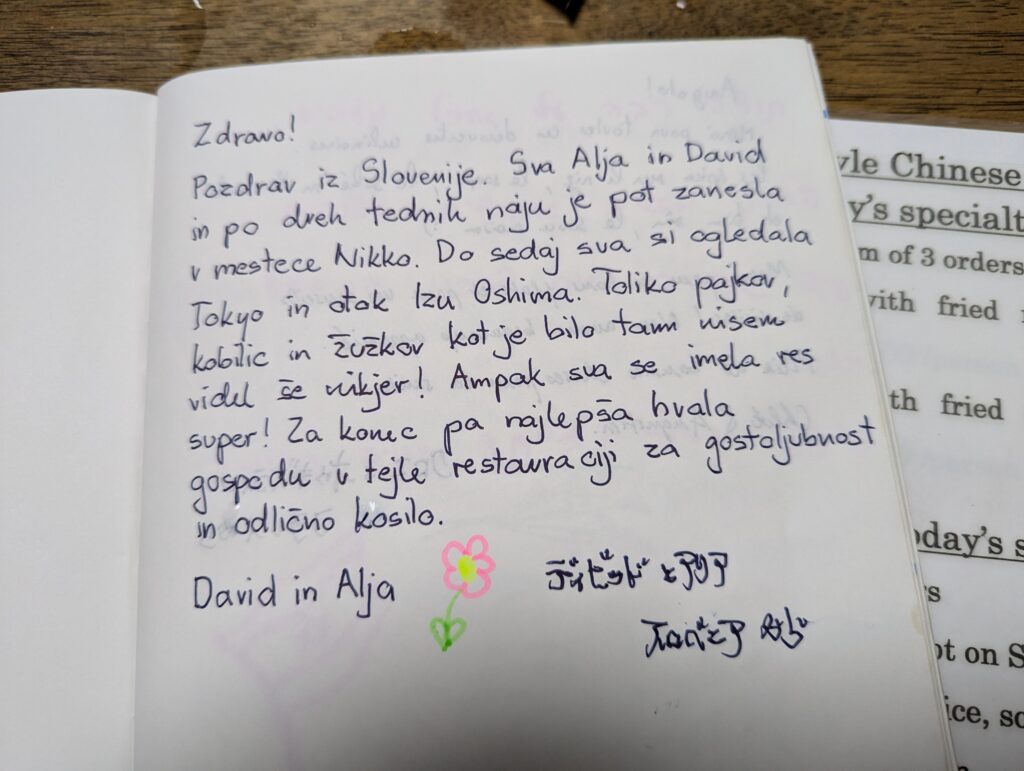 Zdravo!
Pozdrav iz Slovenije. Sva Alja in David
in po dveh tednih naju je pot zanesla
v mestece Nikko. Do sedaj sva si ogledala
Tokyo in otok Izu Oshima. Toliko pajkov,
kobilic in žužkov kot je bilo tam nisem
videl še nikjer! Ampak sva se imela res
super! Za konec pa najlepša hvala
gospodu v tejle restavraciji za gostoljubnost
in odlično kosilo.
David in Alja
デイビッド とアリア
yle Chinese
y's specialt
m of 3 orders
with fried
th fried
oday's s
rs
pt on S
ice, so